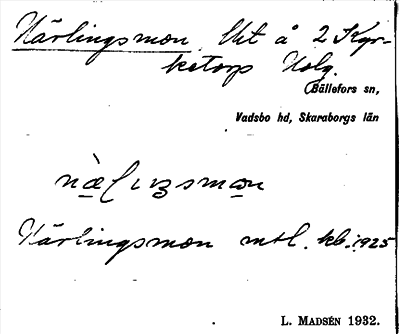 Närlingsmon. Ut å 2 Kyr-
ketorp Holg.
Bällefors sn,
Vadsbo hd, Skaraborgs län
Närlingsmon mtl. kb. 1925
L. MADSÉN 1932.